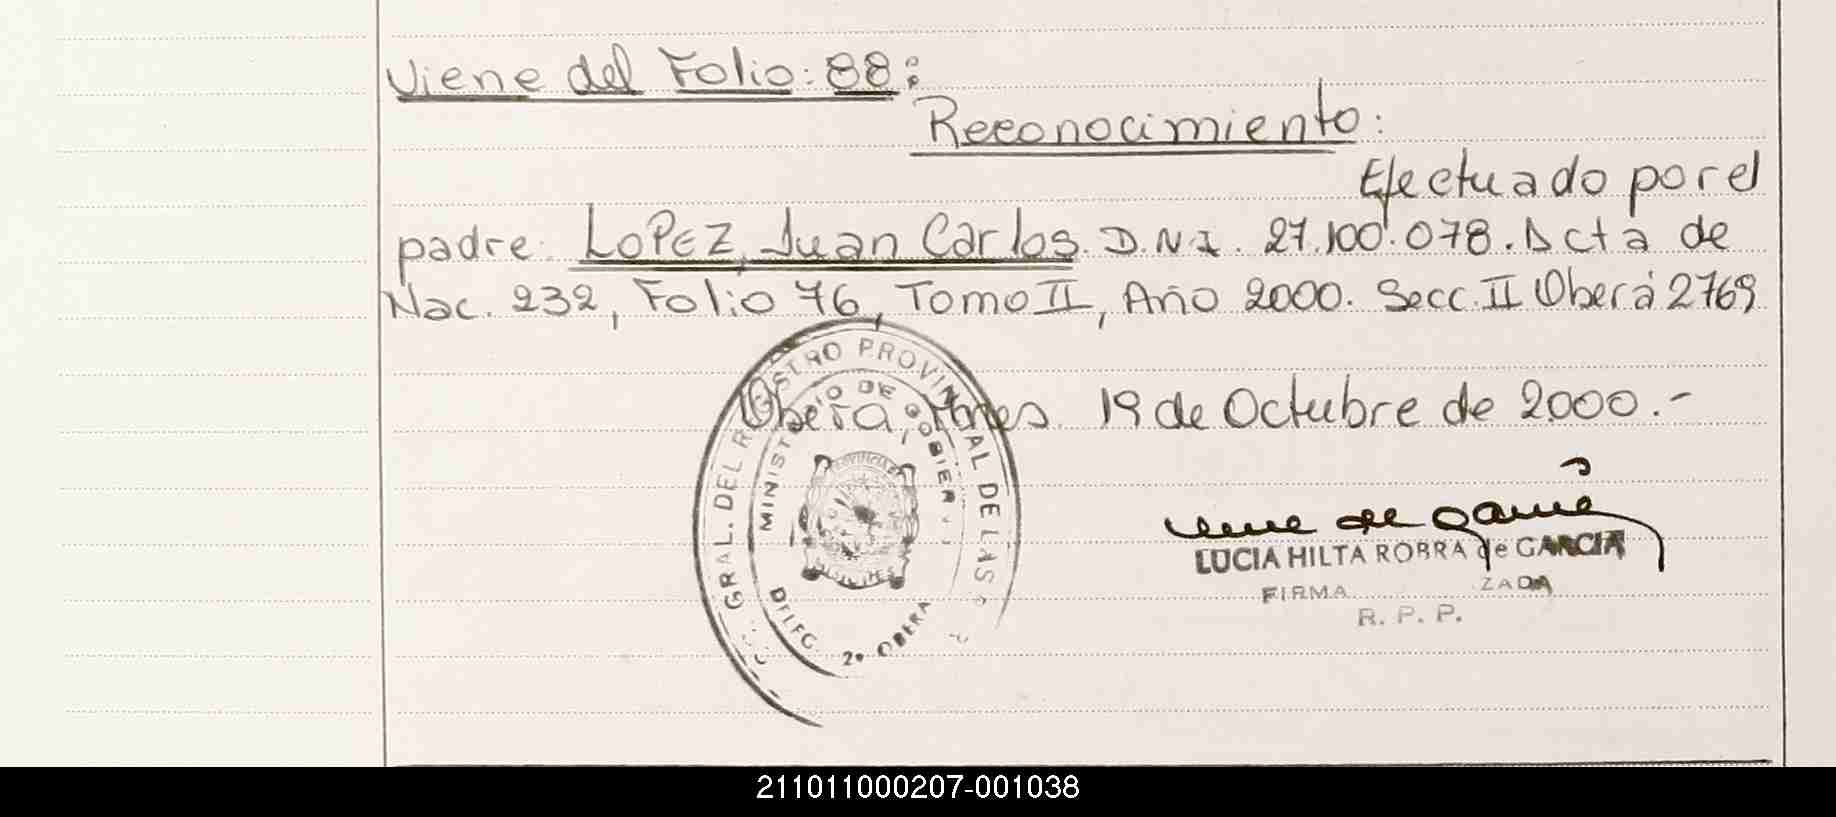 Viene del Folio: 88:
Reconocimiento:
Efectuado por el
padre: LOPEZ, Juan Carlos. D.N.I. 27.100.078. Acta de
Nac. 232, Folio 76, Tomo II, Año 2000. Secc. II Oberá 2769
Oberá, Mnes. 19 de Octubre de 2000.-
GRAL. DEL REGISTRO PROVINCIAL DE LAS
MINISTERIO DE GOBIER
PROVINCIA
MISIONES
DELEG. 2ª OBERA
de García
LUCIA HILTA ROBRA de GARCIA
FIRMA ZADA
R. P. P.
211011000207-001038